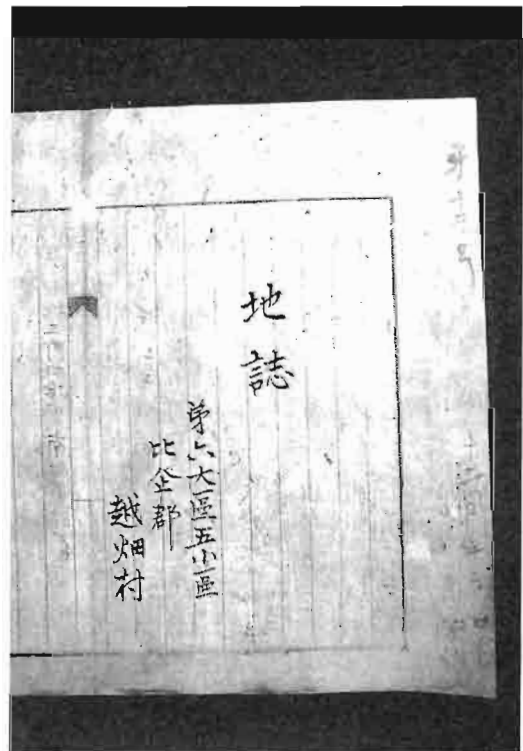 地誌
第六大區五小區
比企郡
越畑村